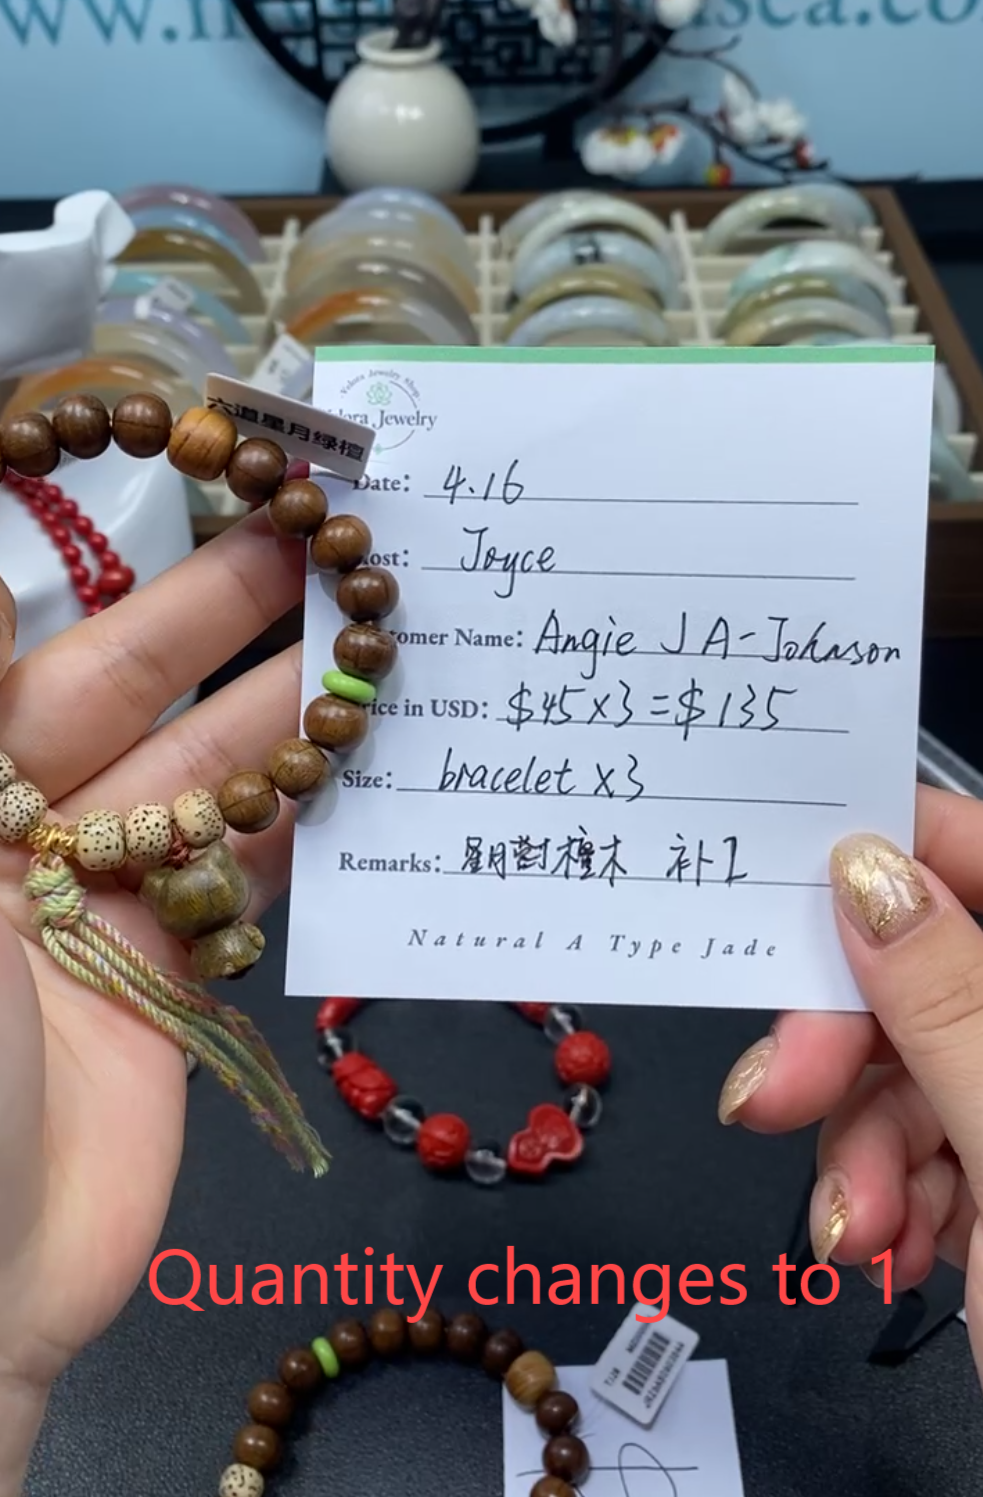 Velora Jewelry Shop
Jewelry
六道星月绿檀
Date: 4.16
ost: Joyce
tomer Name: Angie J A-Johnson
ice in USD: $45x3=$135
Size: bracelet x3
Remarks: 檀木 补1
Natural A Type Jade
Quantity changes to 1